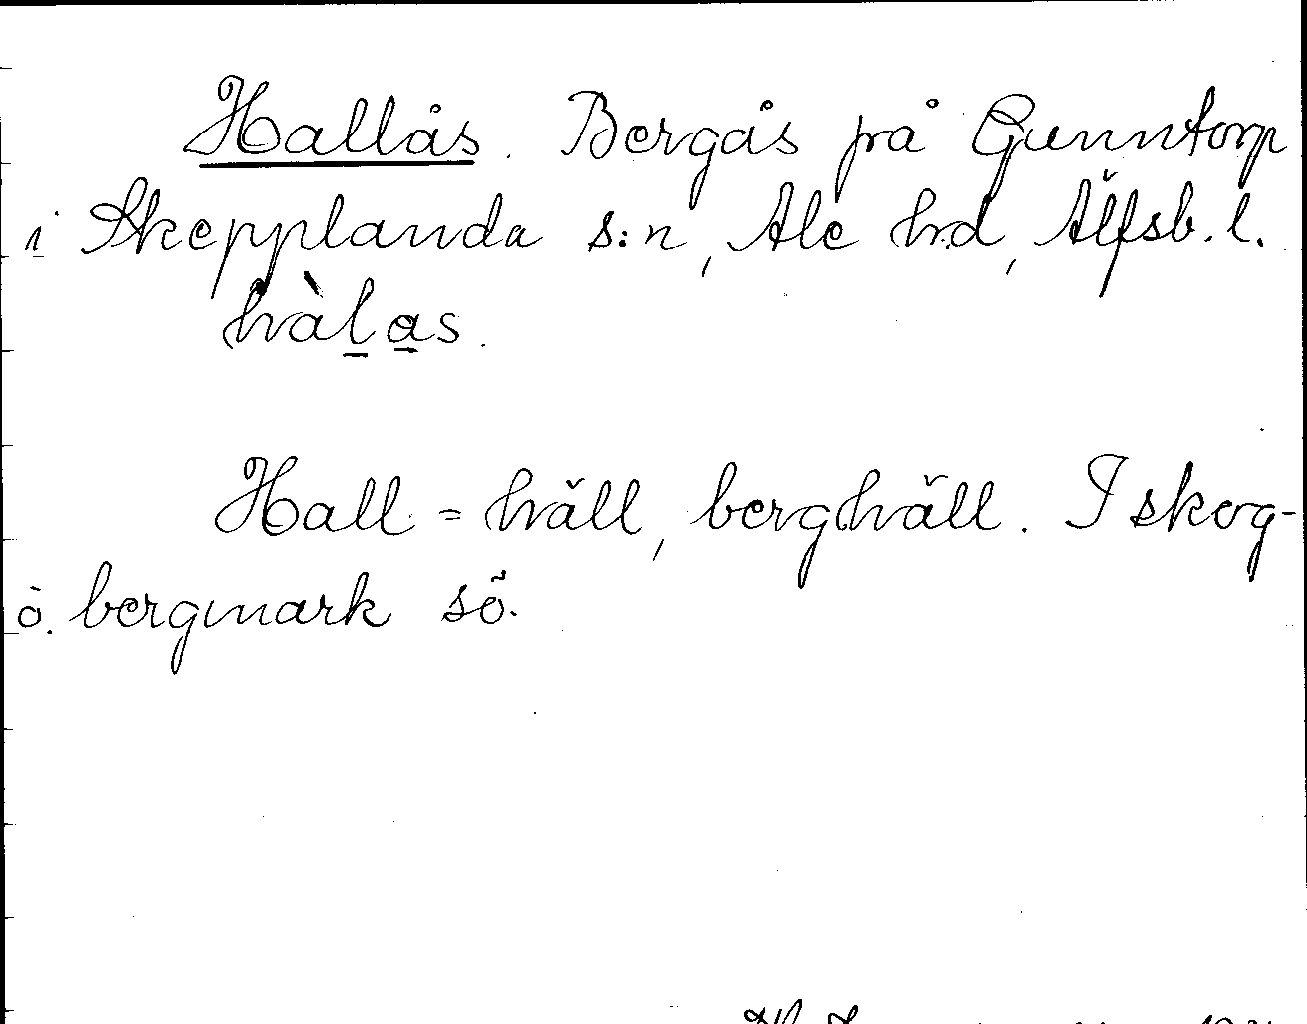 Hallås. Bergås på Gunntorp
i Skepplanda s:n, Ale hd, Älfsb. l.
hàlas.
Hall = häll, berghäll. I skog-
o. bergmark sö.